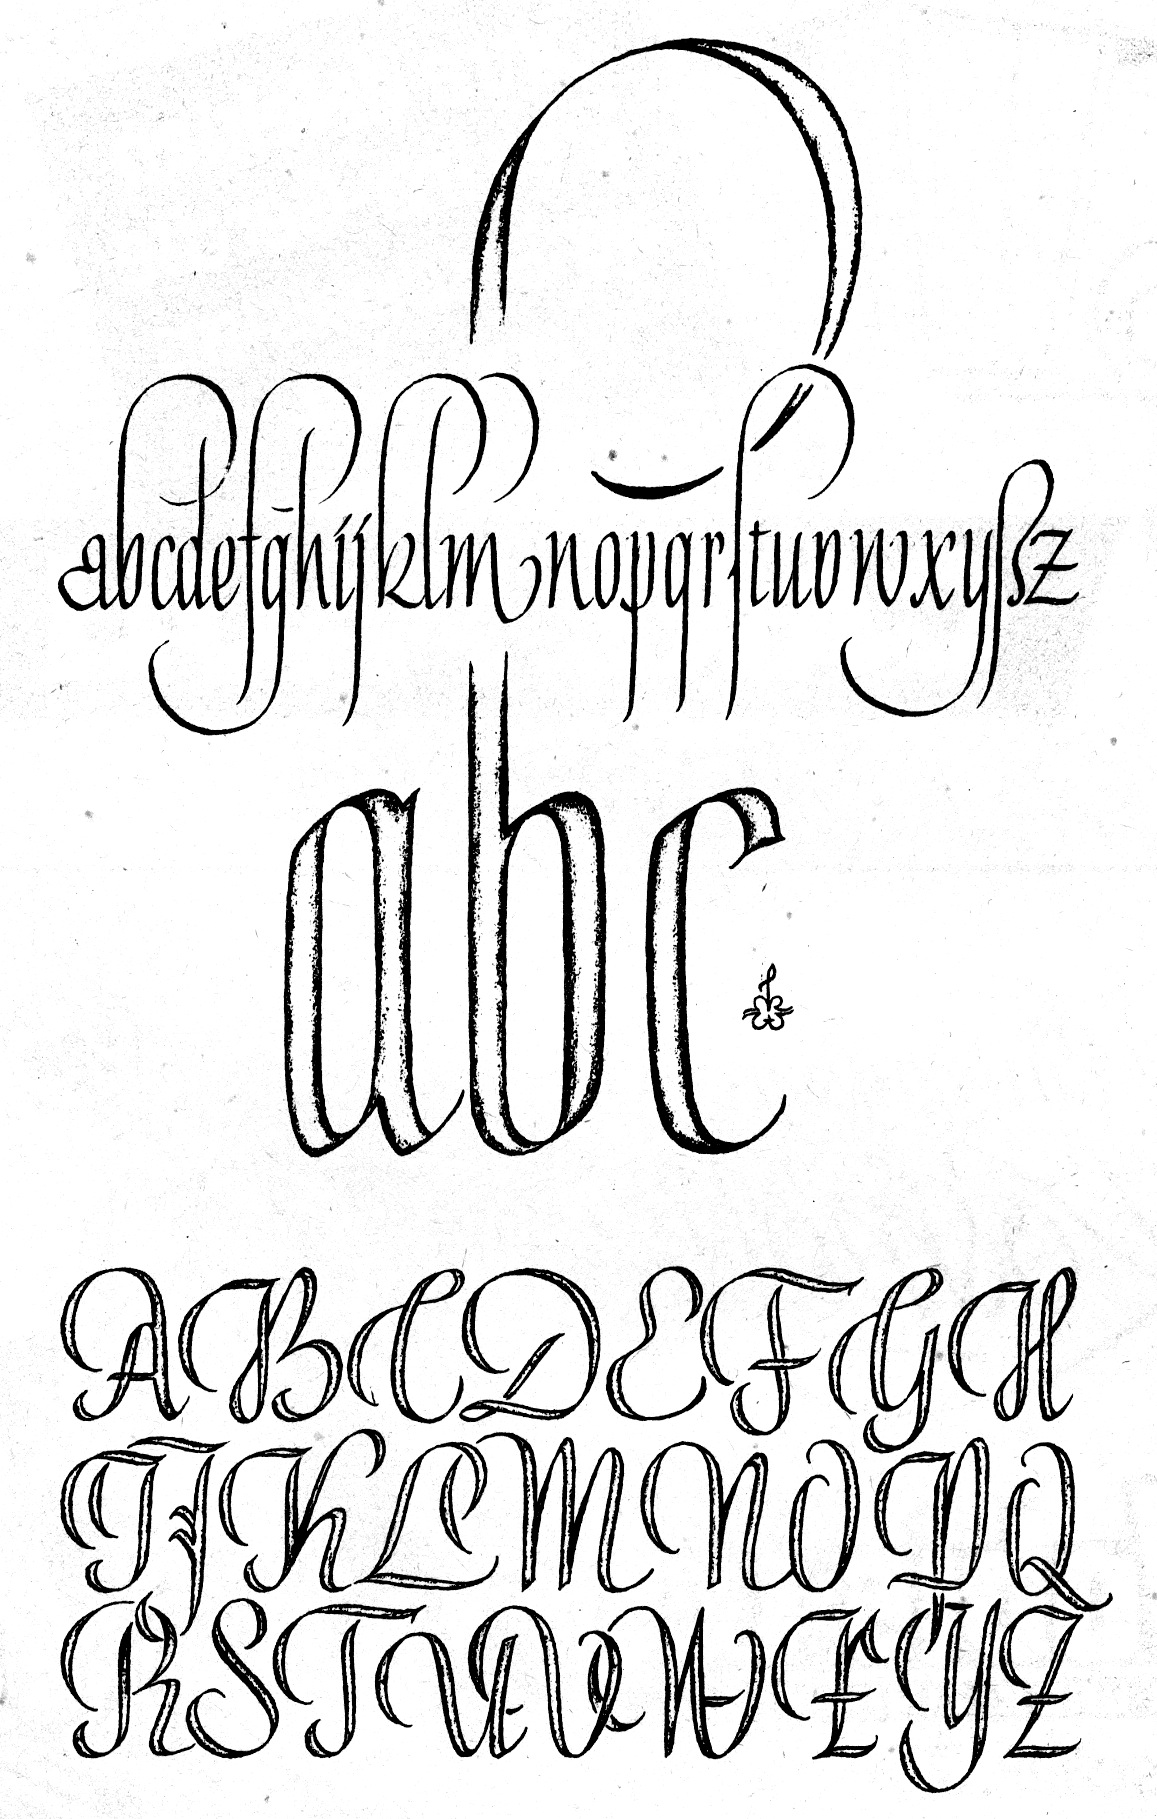 abcdefghijklmnopqrſtuvwxyßz
abc
ABCDEFGH
IJKLMNOPQ
RSTUVWXYZ